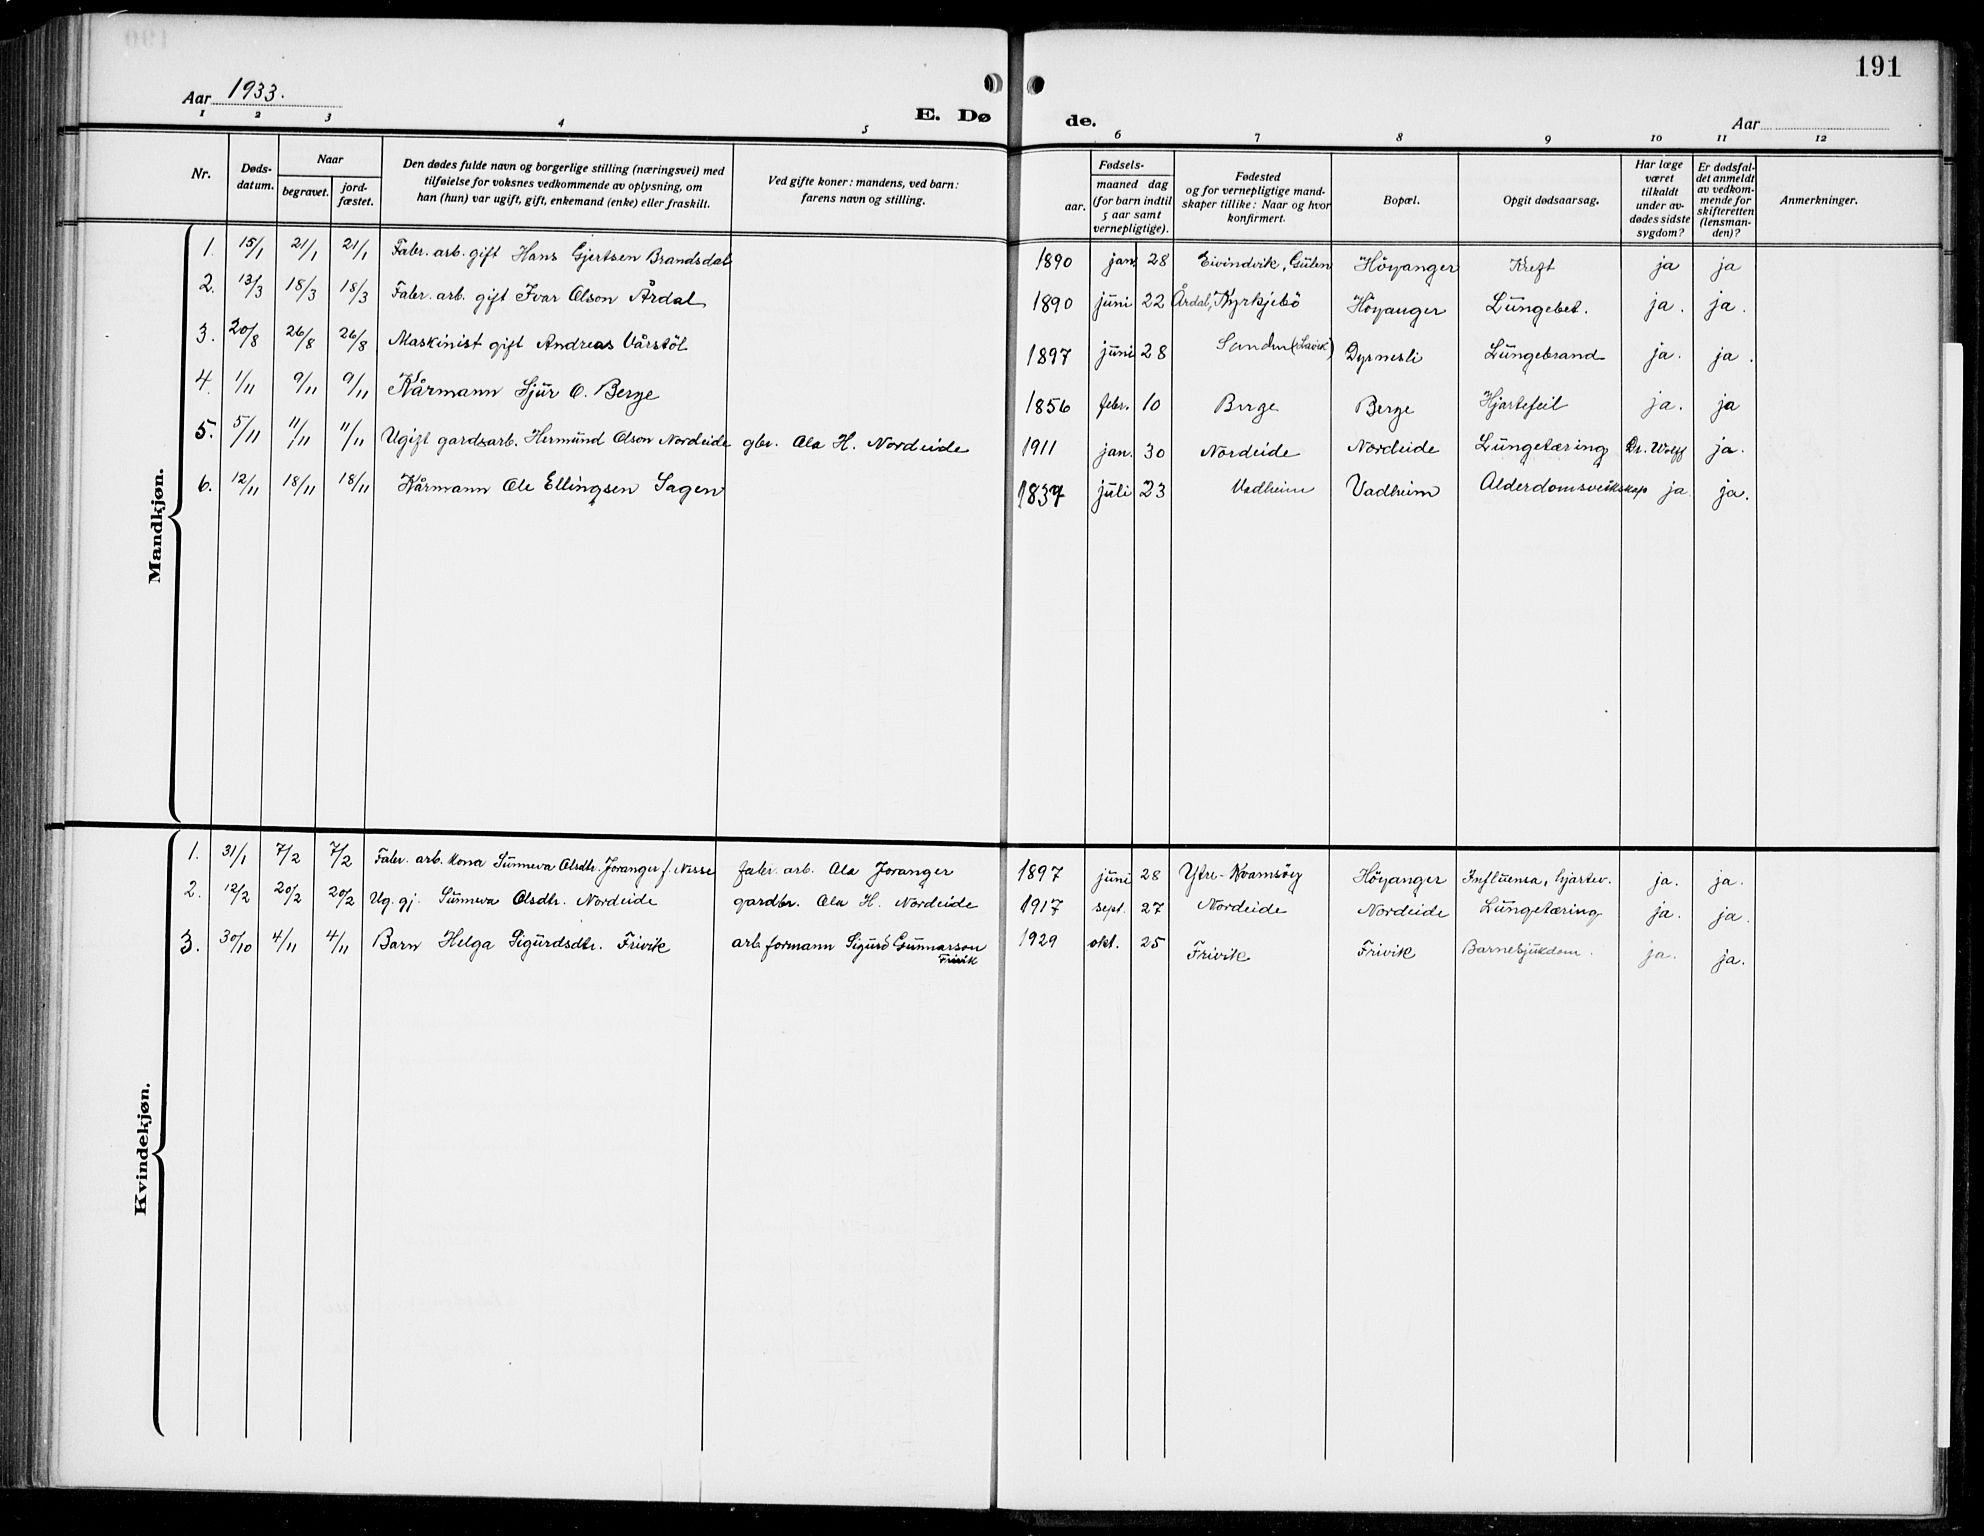 191
Aar 1933.
E. Døde.
Aar
1 2 3 4 5 6 7 8 9 10 11 12
Nr.
Døds-
datum.
Naar
begravet.
jord-
fæstet.
Den dødes fulde navn og borgerlige stilling (næringsvei) med
tilføielse for voksnes vedkommende av oplysning, om
han (hun) var ugift, gift, enkemand (enke) eller fraskilt.
Ved gifte koner: mandens, ved barn:
farens navn og stilling.
Fødsels-
aar.
maaned dag
(for barn indtil
5 aar samt
vernepligtige).
Fødested
og for vernepligtige mand-
skaper tillike: Naar og hvor
konfirmert.
Bopæl.
Opgit dødsaarsag.
Har læge
været
tilkaldt
under av-
dødes sidste
sygdom?
Er dødsfal-
det anmeldt
av vedkom-
mende for
skifteretten
(lensman-
den)?
Anmerkninger.
Mandkjøn.
1. 15/1 21/1 21/1 Fabr. arb. gift Hans Gjertsen Brandsdal 1890 jan. 28 Eivindvik, Gulen Höyanger Kreft ja ja
2. 13/3 18/3 18/3 Fabr. arb. gift Ivar Olson Årdal 1890 juni 22 Årdal, Kyrkjebö Höyanger Lungebet. ja. ja.
3. 20/8 26/8 26/8 Maskinist gift Andreas Vårstöl 1897 juni 28 (Lavik) Dyrnesli Lungebrand ja. ja.
4. 1/11 9/11 9/11 Kårmann Sjur O. Berge 1856 febr. 10 Berge Berge Hjartefeil ja. ja
5. 5/11 11/11 11/11 Ugift gardsarb. Hermund Olson Nordeide gbr. Ola H. Nordeide 1911 jan. 30 Nordeide Nordeide Lungetæring Dr. Wolff ja.
6. 12/11 18/11 18/11 Kårmann Ole Ellingsen Sagen 1837 juli 23 Vadheim Vadheim Alderdomsveikskap ja ja.
Kvindekjøn.
1. 31/1 7/2 7/2 Fabr. arb. kona Sunneva Olsdtr. Joranger f. Nesse fabr. arb. Ola Joranger 1897 juni 28 Ytre-Kvamsöy Höyanger Influensa, hjartev. ja. ja.
2. 12/2 20/2 20/2 Ug. gj. Sunneva Olsdtr. Nordeide gardbr. Ola H. Nordeide 1917 sept. 27 Nordeide Nordeide Lungetæring ja. ja.
3. 30/10 4/11 4/11 Barn Helga Sigurdsdtr. Frivik arb. formann Sigurd Gunnarson Frivik 1929 okt. 25 Frivik Frivik Barnesjukdom. ja. ja.